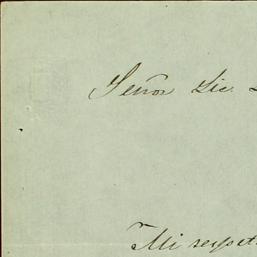 Señor Lic.
Mi respet